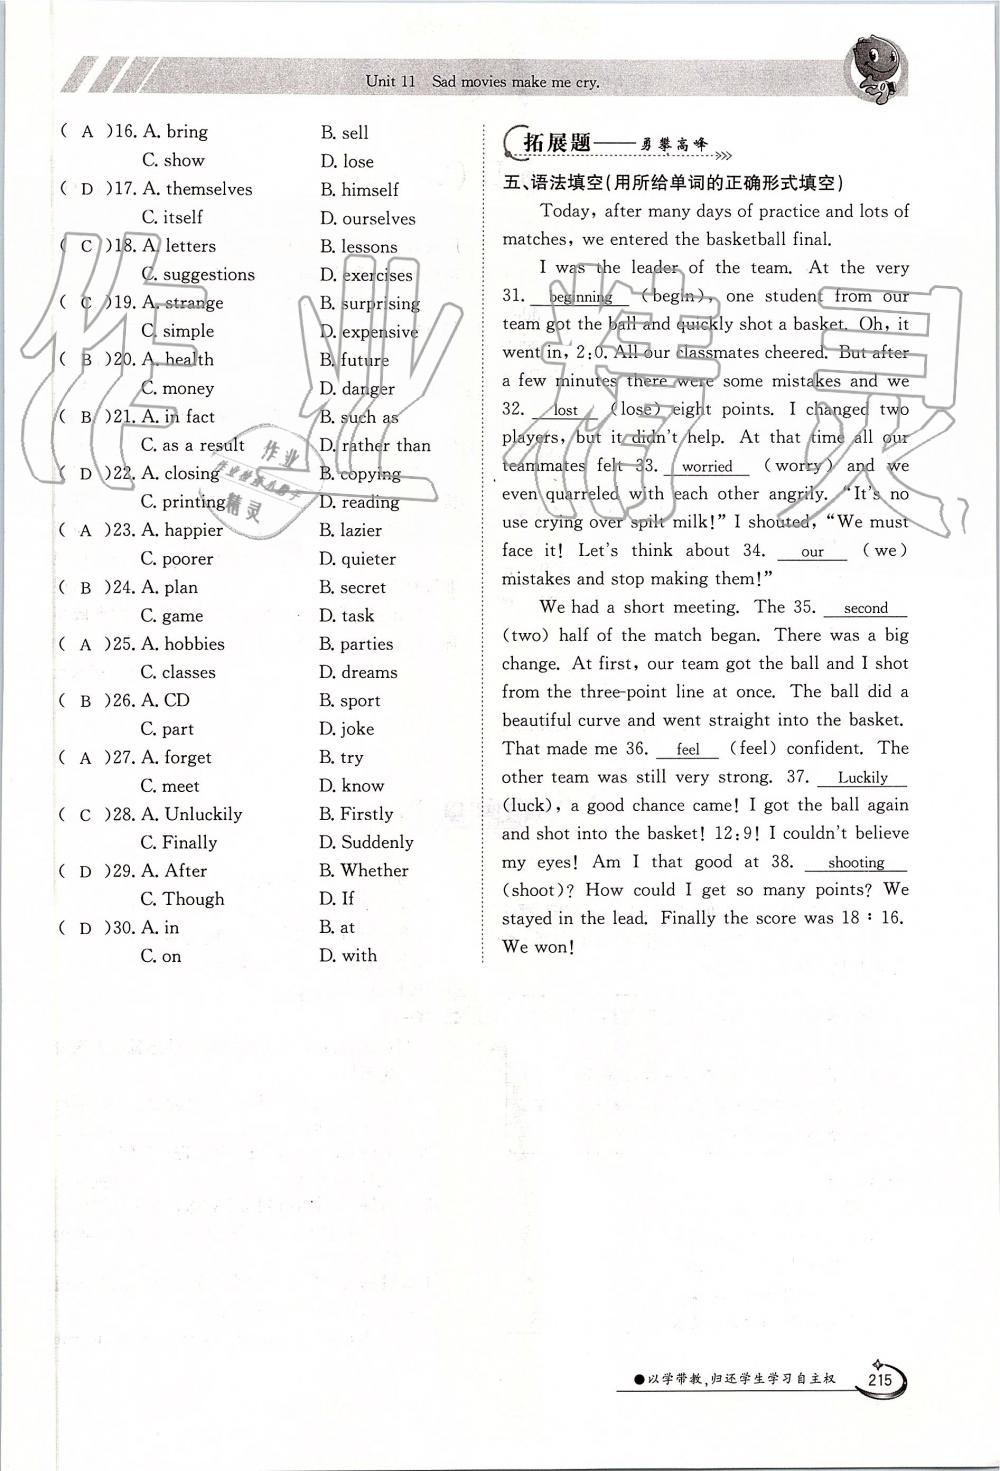 Unit 11 Sad movies make me cry.
( A )16. A. bring B. sell
C. show D. lose
( D )17. A. themselves B. himself
C. itself D. ourselves
( C )18. A. letters B. lessons
C. suggestions D. exercises
( C )19. A. strange B. surprising
C. simple D. expensive
( B )20. A. health B. future
C. money D. danger
( B )21. A. in fact B. such as
C. as a result D. rather than
( D )22. A. closing B. copying
C. printing D. reading
( A )23. A. happier B. lazier
C. poorer D. quieter
( B )24. A. plan B. secret
C. game D. task
( A )25. A. hobbies B. parties
C. classes D. dreams
( B )26. A. CD B. sport
C. part D. joke
( A )27. A. forget B. try
C. meet D. know
( C )28. A. Unluckily B. Firstly
C. Finally D. Suddenly
( D )29. A. After B. Whether
C. Though D. If
( D )30. A. in B. at
C. on D. with
拓展题——勇攀高峰
五、语法填空(用所给单词的正确形式填空)
Today, after many days of practice and lots of
matches, we entered the basketball final.
I was the leader of the team. At the very
31. beginning (begin), one student from our
team got the ball and quickly shot a basket. Oh, it
went in, 2:0. All our classmates cheered. But after
a few minutes there were some mistakes and we
32. lost (lose) eight points. I changed two
players, but it didn't help. At that time all our
teammates felt 33. worried (worry) and we
even quarreled with each other angrily. "It's no
use crying over spilt milk!" I shouted, "We must
face it! Let's think about 34. our (we)
mistakes and stop making them!"
We had a short meeting. The 35. second
(two) half of the match began. There was a big
change. At first, our team got the ball and I shot
from the three-point line at once. The ball did a
beautiful curve and went straight into the basket.
That made me 36. feel (feel) confident. The
other team was still very strong. 37. Luckily
(luck), a good chance came! I got the ball again
and shot into the basket! 12:9! I couldn't believe
my eyes! Am I that good at 38. shooting
(shoot)? How could I get so many points? We
stayed in the lead. Finally the score was 18 : 16.
We won!
作业精灵
作业
精灵
●以学带教,归还学生学习自主权 215